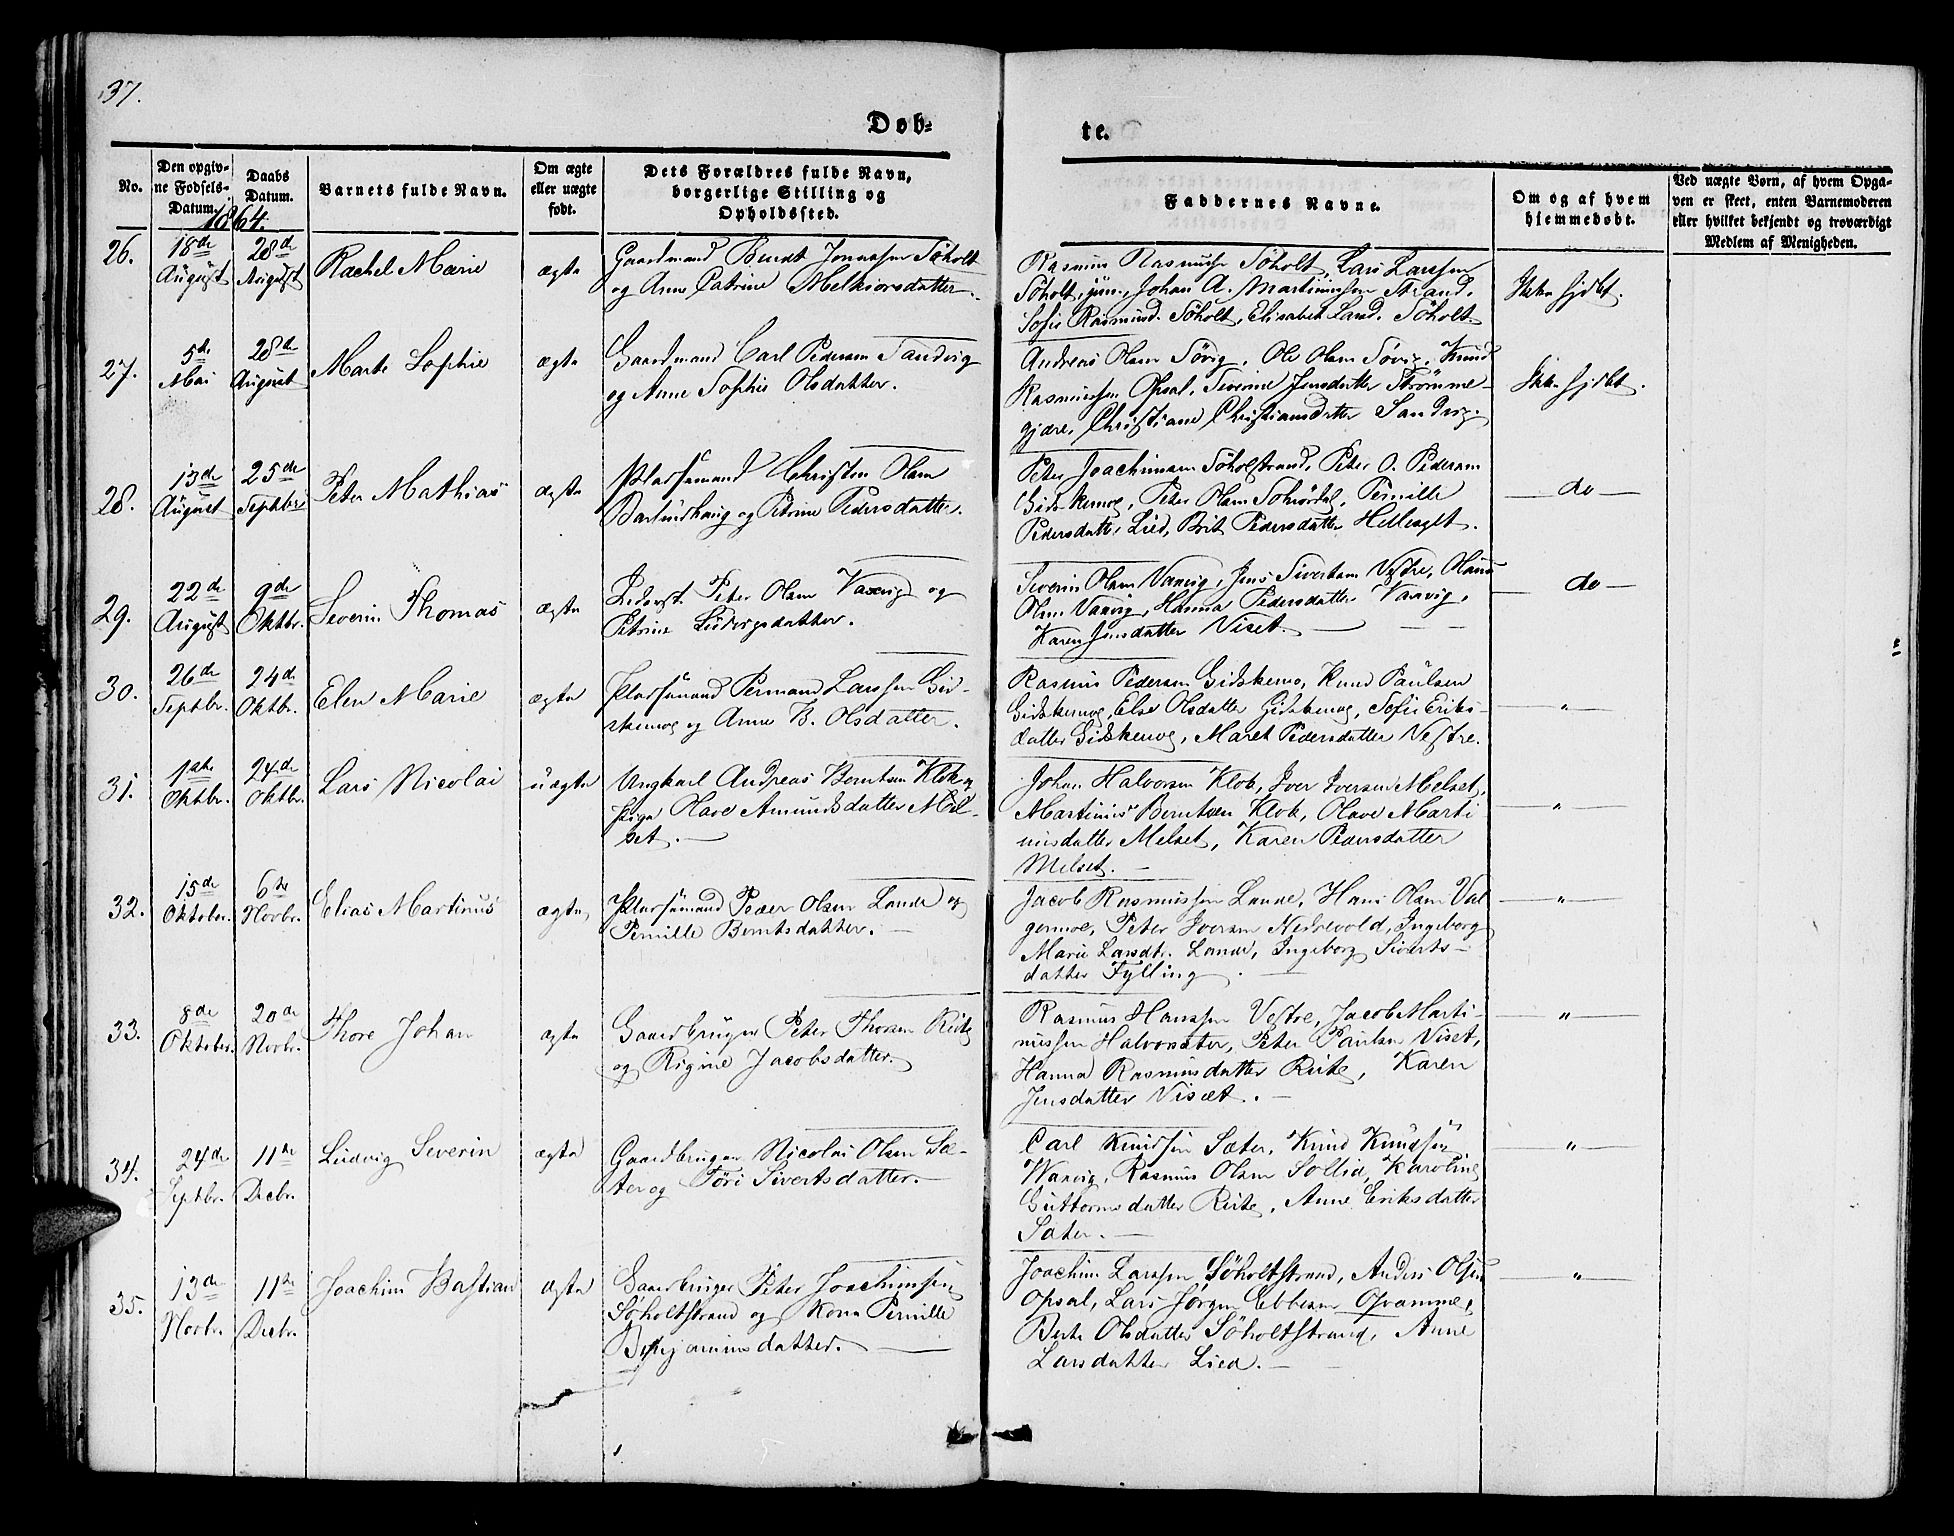 37.
Døb-
te.
No.
Den opgiv-
ne Fødsels-
Datum.
Daabs
Datum.
Barnets fulde Navn.
Om ægte
eller uægte
født.
Dets Forældres fulde Navn,
borgerlige Stilling og
Opholdssted.
Faddernes Navne.
Om og af hvem
hjemmedøbt.
Ved uægte Børn, af hvem Opga-
ven er skeet, enten Barnemoderen
eller hvilket bekjendt og troværdigt
Medlem af Menigheden.
1864.
26.
18de
August
28de
August
Rachel Marie
ægte
Gaardmand Berndt Jonassen Søholt
og Anne Petrine Melkiorsdatter.
Rasmus Rasmussen Søholt, Lars Larssen
Søholt, jun., Johan A. Martinussen Strand,
Sofie Rasmusd. Søholt, Elisabet Land. Søholt
Ikke hjdbt.
27.
5te
Mai
28de
August
Marte Sophie
ægte
Gaardmand Carl Pedersen Sandvig
og Anne Sophie Olsdatter.
Andreas Olsen Søvig, Ole Olsen Søvig, Knud
Rasmussen Opsal, Severine Jensdatter Strømme-
gjære, Christiane Christiansdatter Sandvig.
Ikke hjdbt.
28.
13de
August
25de
Septber
Peter Mathias
ægte
Pladsemand Christen Olsen
og Petrine Pedersdatter.
Peter Joachimsen Søholtstrand, Peter O. Pedersen
Gidskemog, Peter Olsen Pernille
Pedersdatter Lied, Brit Pedersdatter
do
29.
22de
August
9de
Oktbr.
Severin Thomas
ægte
Peter Olsen Vaxvig og
Petrine Ludvigsdatter.
Severin Olsen Vaxvig, Jens Sivertsen Vestre, Olaus
Olsen Vaxvig, Hanna Pedersdatter Vaxvig,
Karen Jensdatter Viset.
do
30.
26de
Septbr.
24de
Oktbr.
Elen Marie
ægte
Pladsemand Permand Larssen Gid-
skemog og Anne B. Olsdatter.
Rasmus Pedersen Gidskemo, Knud Paulsen
Gidskemog, Else Olsdatter Gidskemog, Sofie Eriks-
datter Gidskemog, Maret Pedersdatter Vestre.
"
31.
1ste
Oktbr.
24de
Oktbr.
Lars Nicolai
uægte
Ungkarl Andreas Berntsen Klok og
Pige Olave Amundsdatter Mel-
set.
Johan Halvorsen Klok, Iver Iversen Melset,
Martinus Berntsen Klok, Olave Marti
nusdatter Melset, Karen Pedersdatter
Melset.
"
32.
15de
Oktober.
6te
Novbr.
Elias Martinus
ægte
Pladsemand Peder Olsen Lande og
Pernille Berntsdatter.
Jacob Rasmussen Lande, Hans Olsen Val
germoe, Peter Iversen Nedrevold, Ingeborg
Marie Larsdtr. Lande, Ingeborg Siverts-
datter Fylling.
"
33.
8de
Oktober.
20de
Novbr.
Thore Johan
ægte
Gaardbruger Peter Thorsen Rite
og Rigine Jacobsdatter.
Rasmus Hanssen Vestre, Jacob Marti-
nussen Halvorsæter, Peter Paulsen Viset,
Hanna Rasmusdatter Rite, Karen
Jensdatter Viset.
"
34.
24de
Septbr.
11te
Decbr.
Ludvig Severin
ægte
Gaardbruger Nicolai Olsen Sæ-
ter og Tøri Sivertsdatter.
Carl Knudsen Sæter, Knud Knudsen
Waxvig, Rasmus Olsen Sollid, Karoline
Guttormsdatter Rite, Anne Eriksdatter
Sæter.
"
35.
13de
Novbr.
11te
Decbr.
Joachim Bastian
ægte
Gaardbruger Peter Joachimsen
Søholtstrand og Kone Pernille
Benjaminsdatter.
Joachim Larssen Søholtstrand, Anders Olsen
Opsal, Lars Jørgen Ebbesen Ovramme,
Berte Olsdatter Søholtstrand, Anne
Larsdatter Lied.
"